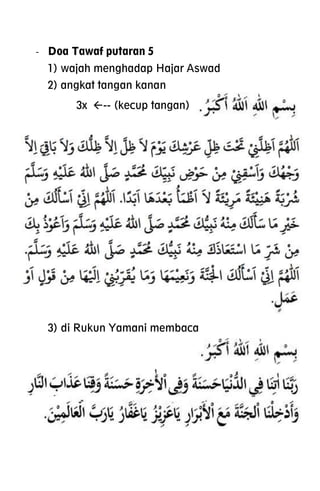 - Doa Tawaf putaran 5
1) wajah menghadap Hajar Aswad
2) angkat tangan kanan
3x <-- (kecup tangan) بِسْمِ اللهِ اَللهُ أَكْبَرُ.
اَللّٰهُمَّ اَظِلَّنِيْ تَحْتَ ظِلِّ عَرْشِكَ يَوْمَ لَا ظِلَّ اِلَّا ظِلُّكَ وَلَا بَاقِيَ اِلَّا
وَجْهُكَ وَاَسْقِنِيْ مِنْ حَوْضِ نَبِيِّكَ مُحَمَّدٍ صَلَّى اللهُ عَلَيْهِ وَسَلَّمَ
شُرْبَةً هَنِيْئَةً مَرِيْئَةً لَا اَظْمَأُ بَعْدَهَا اَبَدًا. اَللّٰهُمَّ اِنِّيْ اَسْأَلُكَ مِنْ
خَيْرِ مَا سَأَلَكَ مِنْهُ نَبِيُّكَ مُحَمَّدٍ صَلَّى اللهُ عَلَيْهِ وَسَلَّمَ وَاَعُوْذُ بِكَ
مِنْ شَرِّ مَا اسْتَعَاذَكَ مِنْهُ نَبِيُّكَ مُحَمَّدٍ صَلَّى اللهُ عَلَيْهِ وَسَلَّمَ.
اَللّٰهُمَّ اِنِّيْ اَسْأَلُكَ الْجَنَّةَ وَنَعِيْمَهَا وَمَا يُقَرِّبُنِيْ اِلَيْهَا مِنْ قَوْلٍ اَوْ
عَمَلٍ.
3) di Rukun Yamani membaca
بِسْمِ اللهِ اَللهُ أَكْبَرُ.
رَبَّنَا اٰتِنَا فِي الدُّنْيَا حَسَنَةً وَفِي الْأٰخِرَةِ حَسَنَةً وَقِنَا عَذَابَ النَّارِ
وَأَدْخِلْنَا الْجَنَّةَ مَعَ الْأَبْرَارِ يَاعَزِيْزُ يَاغَفَّارُ يَارَبَّ الْعَالَمِيْنَ.